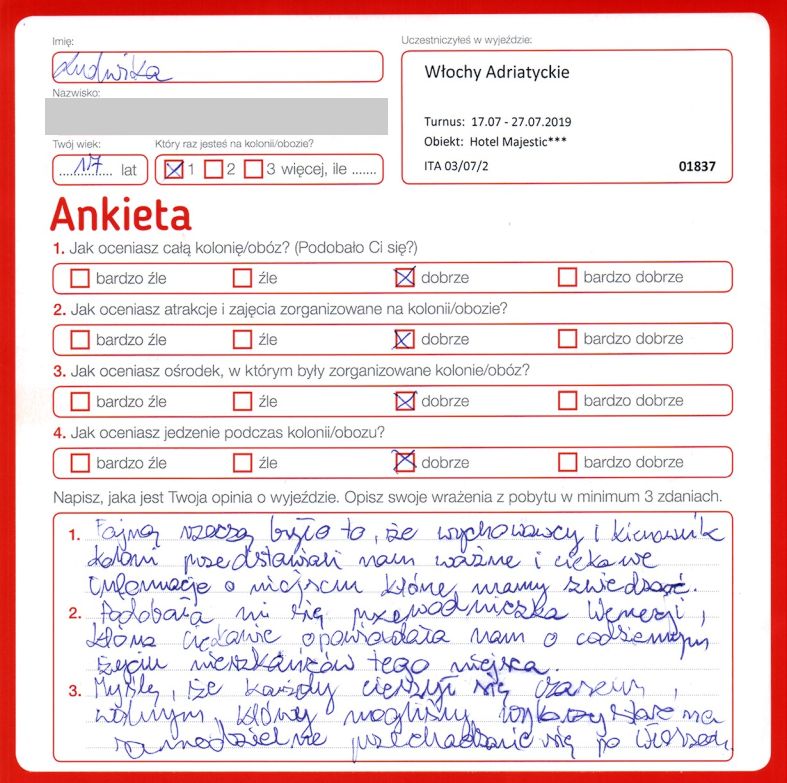 Imię:
Ludwika
Nazwisko:
Twój wiek:
17 lat
Który raz jesteś na kolonii/obozie?
1 2 3 więcej, ile .......
Uczestniczyłeś w wyjeździe:
Włochy Adriatyckie
Turnus: 17.07 - 27.07.2019
Obiekt: Hotel Majestic***
ITA 03/07/2 01837
Ankieta
1. Jak oceniasz całą kolonię/obóz? (Podobało Ci się?)
bardzo źle źle dobrze bardzo dobrze
2. Jak oceniasz atrakcje i zajęcia zorganizowane na kolonii/obozie?
bardzo źle źle dobrze bardzo dobrze
3. Jak oceniasz ośrodek, w którym były zorganizowane kolonie/obóz?
bardzo źle źle dobrze bardzo dobrze
4. Jak oceniasz jedzenie podczas kolonii/obozu?
bardzo źle źle dobrze bardzo dobrze
Napisz, jaka jest Twoja opinia o wyjeździe. Opisz swoje wrażenia z pobytu w minimum 3 zdaniach.
1. Fajną rzeczą było to, że wychowawcy i kierownik
koloni przedstawiali nam ważne i ciekawe
informacje o miejscu które mamy zwiedzać.
2. Podobała mi się przewodniczka Wenecji,
która ciekawie opowiadała nam o codziennym
życiu mieszkańców tego miejsca.
3. Myślę, że każdy cieszył się czasem,
wolnym, który mogliśmy wykorzystać na
samodzielnie przechadzanie się po